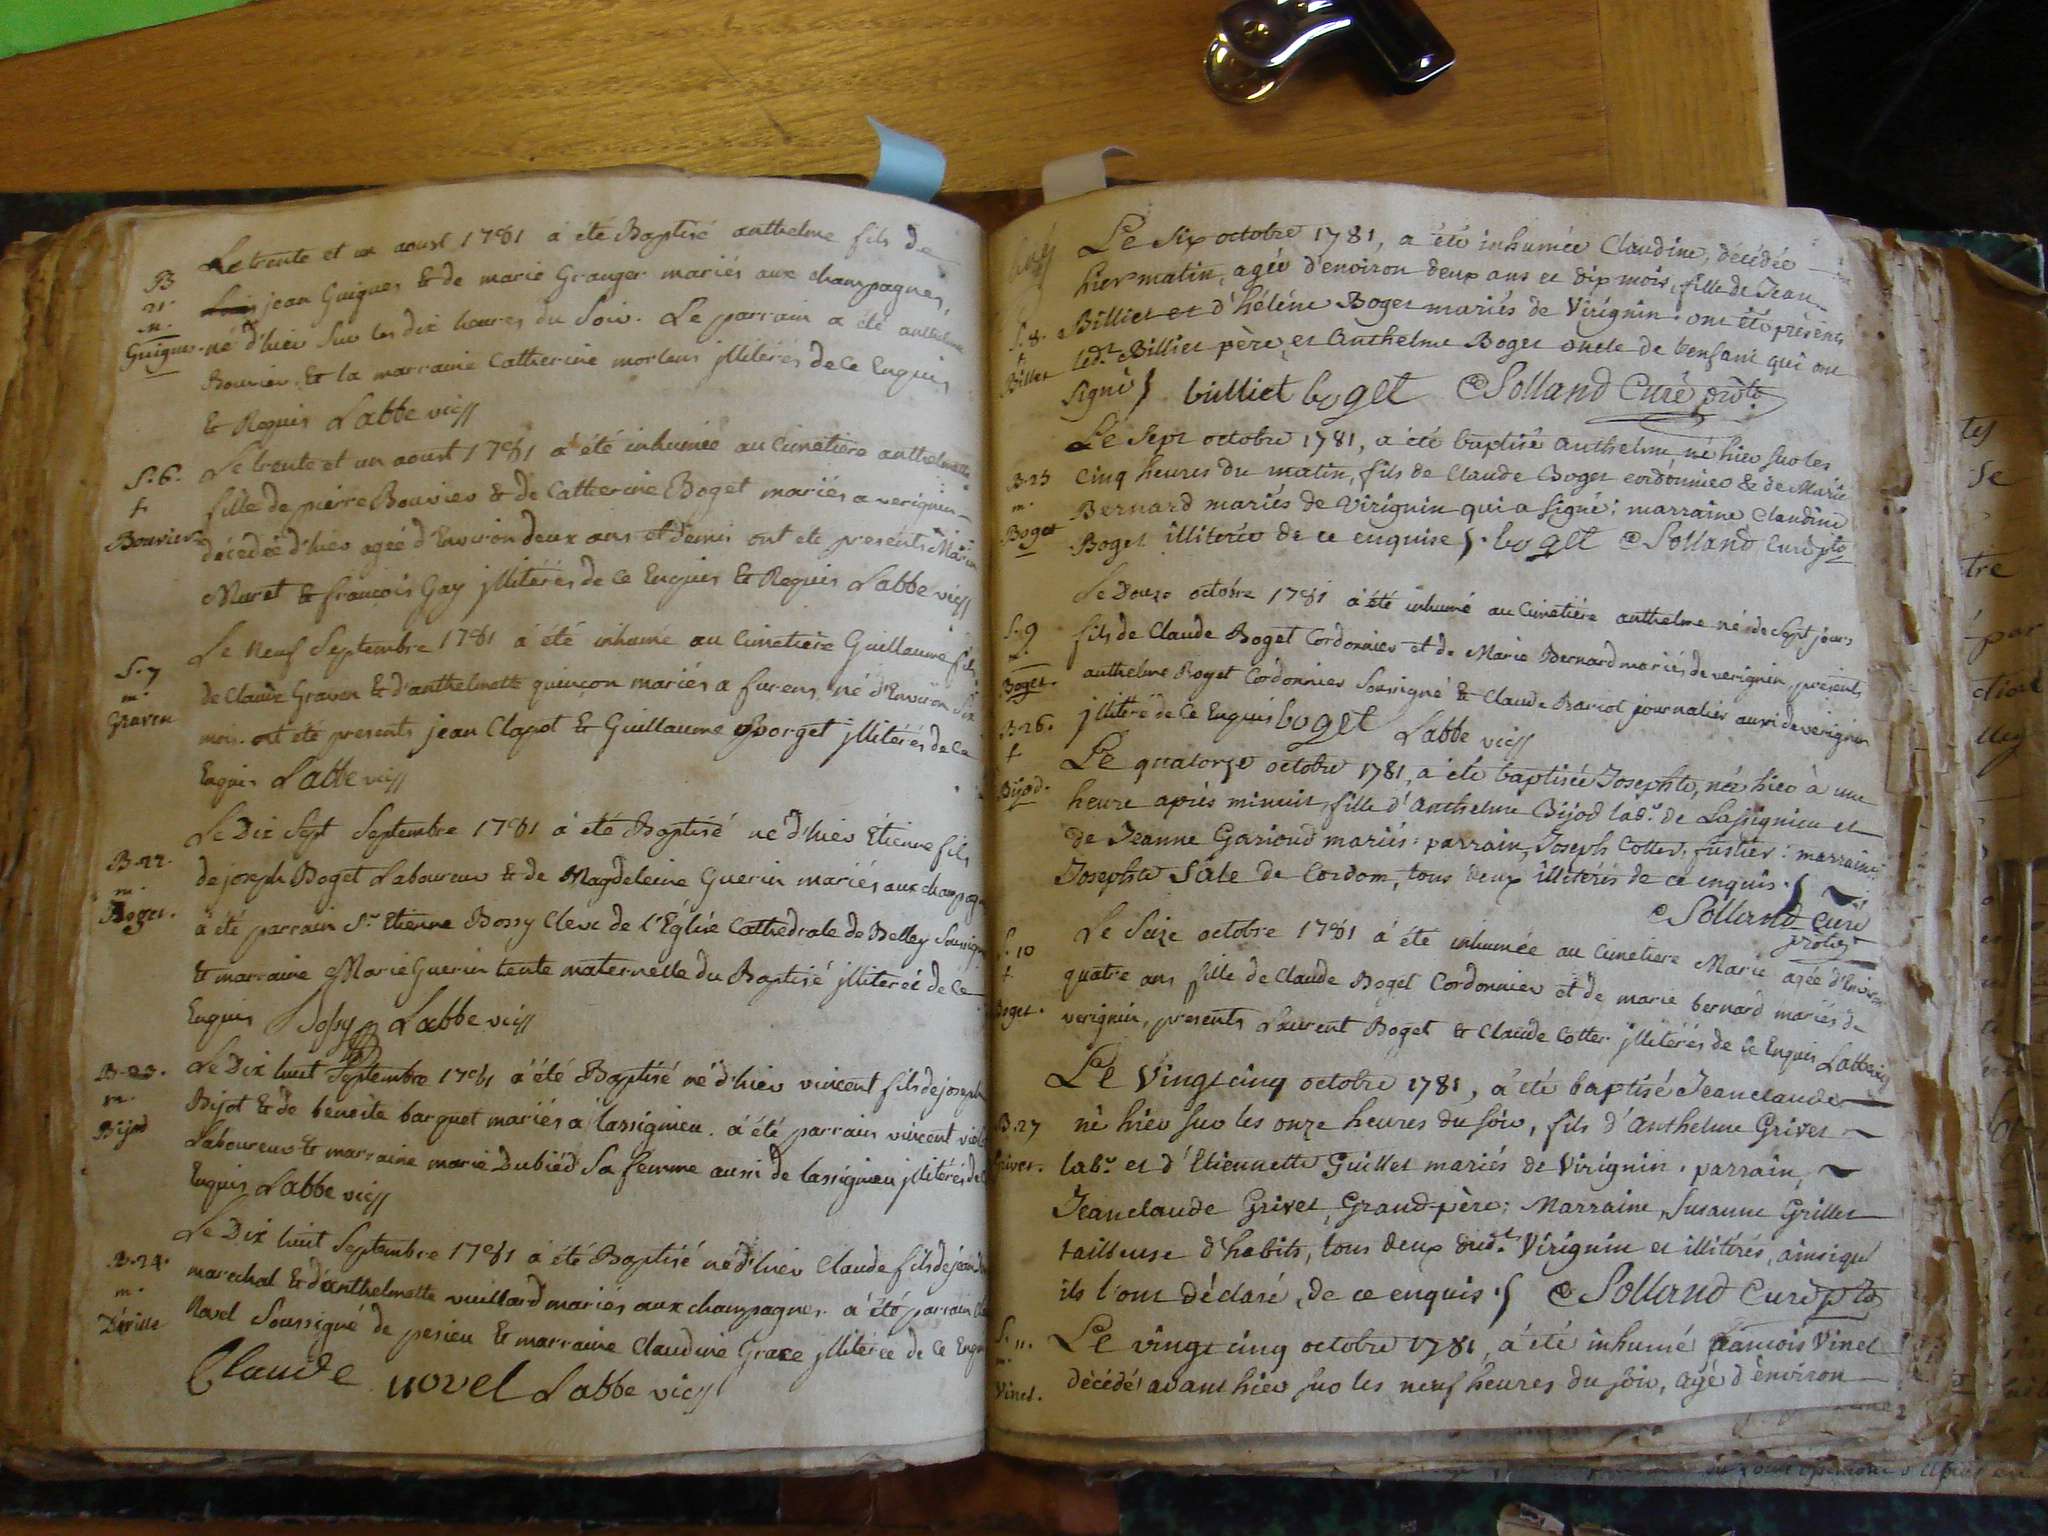 B
21.
m.
Guigues.
Le trente et un aoust 1781 a été Baptisé anthelme fils de
jean Guigues & de marie Granger mariés aux champagnes,
né d'hier sur les dix heures du Soir. Le parrain a été anthelme
Bouvier & la marraine Catherine morlens jllitérés de ce Enquis
& Requis Labbe vic
S. 6.
f.
Bouvier
Le trente et un aoust 1781 a été inhumée au Cimetiere anthelmette
fille de pierre Bouvier & de Catherine Boget mariés a verignin
décedée d'hier agée d'Environ deux ans et demi ont ete presents
Muret & francois Gay jllitérés de ce Enquis & Requis Labbe vic
S. 7
m.
Graven
Le Neuf Septembre 1781 a été inhumé au Cimetiere Guillaume fils
de Claude Graven & d'anthelmette quinçon mariés a furens né d'Environ Six
mois. ont été presents jean Clapot & Guillaume Borget jllitérés de ce
Enquis Labbe vic
B. 22.
m.
Boget.
Le Dix Sept Septembre 1781 a été Baptisé né d'hier Etienne fils
de joseph Boget Laboureur & de Magdeleine Guerin mariés aux champagnes
a été parrain Sr Etienne Bossy Clerc de l'Église Cathedrale de Belley Soussigné
& marraine Marie Guerin tente maternelle du Baptisé jlliterée de Ce
Enquis Bossy Labbe vic
B. 23.
m.
Bijod
Le Dix huit Septembre 1781 a été Baptisé né d'hier vincent fils de joseph
Bijot & de benoite barquet mariés a lassignieu. a été parrain vincent
Laboureur & marraine marie Dubiéd Sa femme aussi de lassignieu jllitérés de ce
Enquis Labbe vic
B. 24.
m.
Le Dix huit Septembre 1781 a été Baptisé né d'hier Claude fils de jean
marechal & d'anthelmette vuillard mariés aux champagnes. a été parrain
Novel Soussigné de pesieu & marraine Claudine Grace jllitérée de Ce Enquis
Claude novel Labbe vic
S. 8.
f.
Billiet
Le Six octobre 1781, a été inhumée Claudine, décédée
hier matin, agée d'environ deux ans et dix mois, fille de Jean
Billiet et d'hélène Boget mariés de Virignin. ont été présents
led.t Billiet père, et Anthelme Boget oncle de l'enfant qui ont
signé billiet boget Solland Curé
B. 25
m.
Boget
Le Sept octobre 1781, a été baptisé Anthelme né hier sur les
cinq heures du matin, fils de Claude Boget cordonnier & de Marie
Bernard mariés de Virignin qui a signé; marraine Claudine
Boget illitérée de ce enquise. boget Solland curé
S. 9
m.
Boget.
Le Douze octobre 1781 a été inhumé au Cimetiére anthelme né de Sept jours
fils de Claude Boget Cordonnier et de Marie Bernard mariés de verignin, présents
anthelme Boget Cordonnier Soussigné & Claude Bariot journalier aussi de verignin
jllitéré de Ce Enquis boget Labbe vic
B. 26.
f
Bijod.
Le quatorze octobre 1781, a été baptisée Josephte, née hier à une
heure après minuit, fille d'Anthelme Bijod lab.r de Lassignieu et
de Jeanne Gariond mariés: parrain, Joseph Cotter, fustier: marraine
Josephte Sâle de Cordom, tous deux illitérés de ce enquis.
Solland curé
S. 10
f
Boget.
Le Seize octobre 1781 a été inhumée au Cimetiere Marie agée d'Environ
quatre ans fille de Claude Boget Cordonnier et de marie bernard mariés de
verignin, presents Laurent Boget & Claude Cotter jllitérés de Ce Enquis Labbe vic
B. 27
Grivet.
Le Vingt cinq octobre 1781, a été baptisé Jeanclaude
né hier sur les onze heures du soir, fils d'Anthelme Grivet
lab.r et d'Etiennette Guillet mariés de Virignin. parrain,
Jeanclaude Grivet, Grand-père; Marraine, Susanne Grillet
tailleuse d'habits, tous deux dud.t Virignin et illitérés, ainsiqu'
ils l'ont déclaré, de ce enquis. Solland Curé
S. 11.
m.
Vinet.
Le vingt cinq octobre 1781, a été inhumé francois Vinet
décédé avant hier sur les neuf heures du soir, agé d'environ